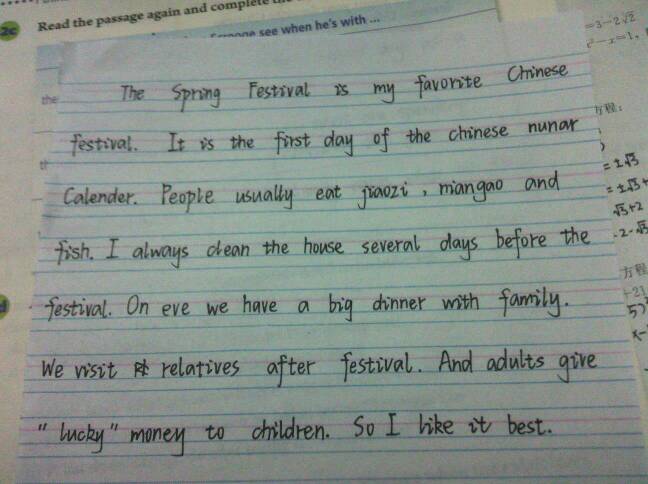 2c Read the passage again and complete
see when he's with ...
=3-2√2
the
The Spring Festival is my favorite Chinese
festival. It is the first day of the chinese nunar
Calender. People usually eat jiaozi, niangao and
fish. I always clean the house several days before the
festival. On eve we have a big dinner with family.
We visit relatives after festival. And adults give
"lucky" money to children. So I like it best.
方程:
=±√3
√3+2
方程